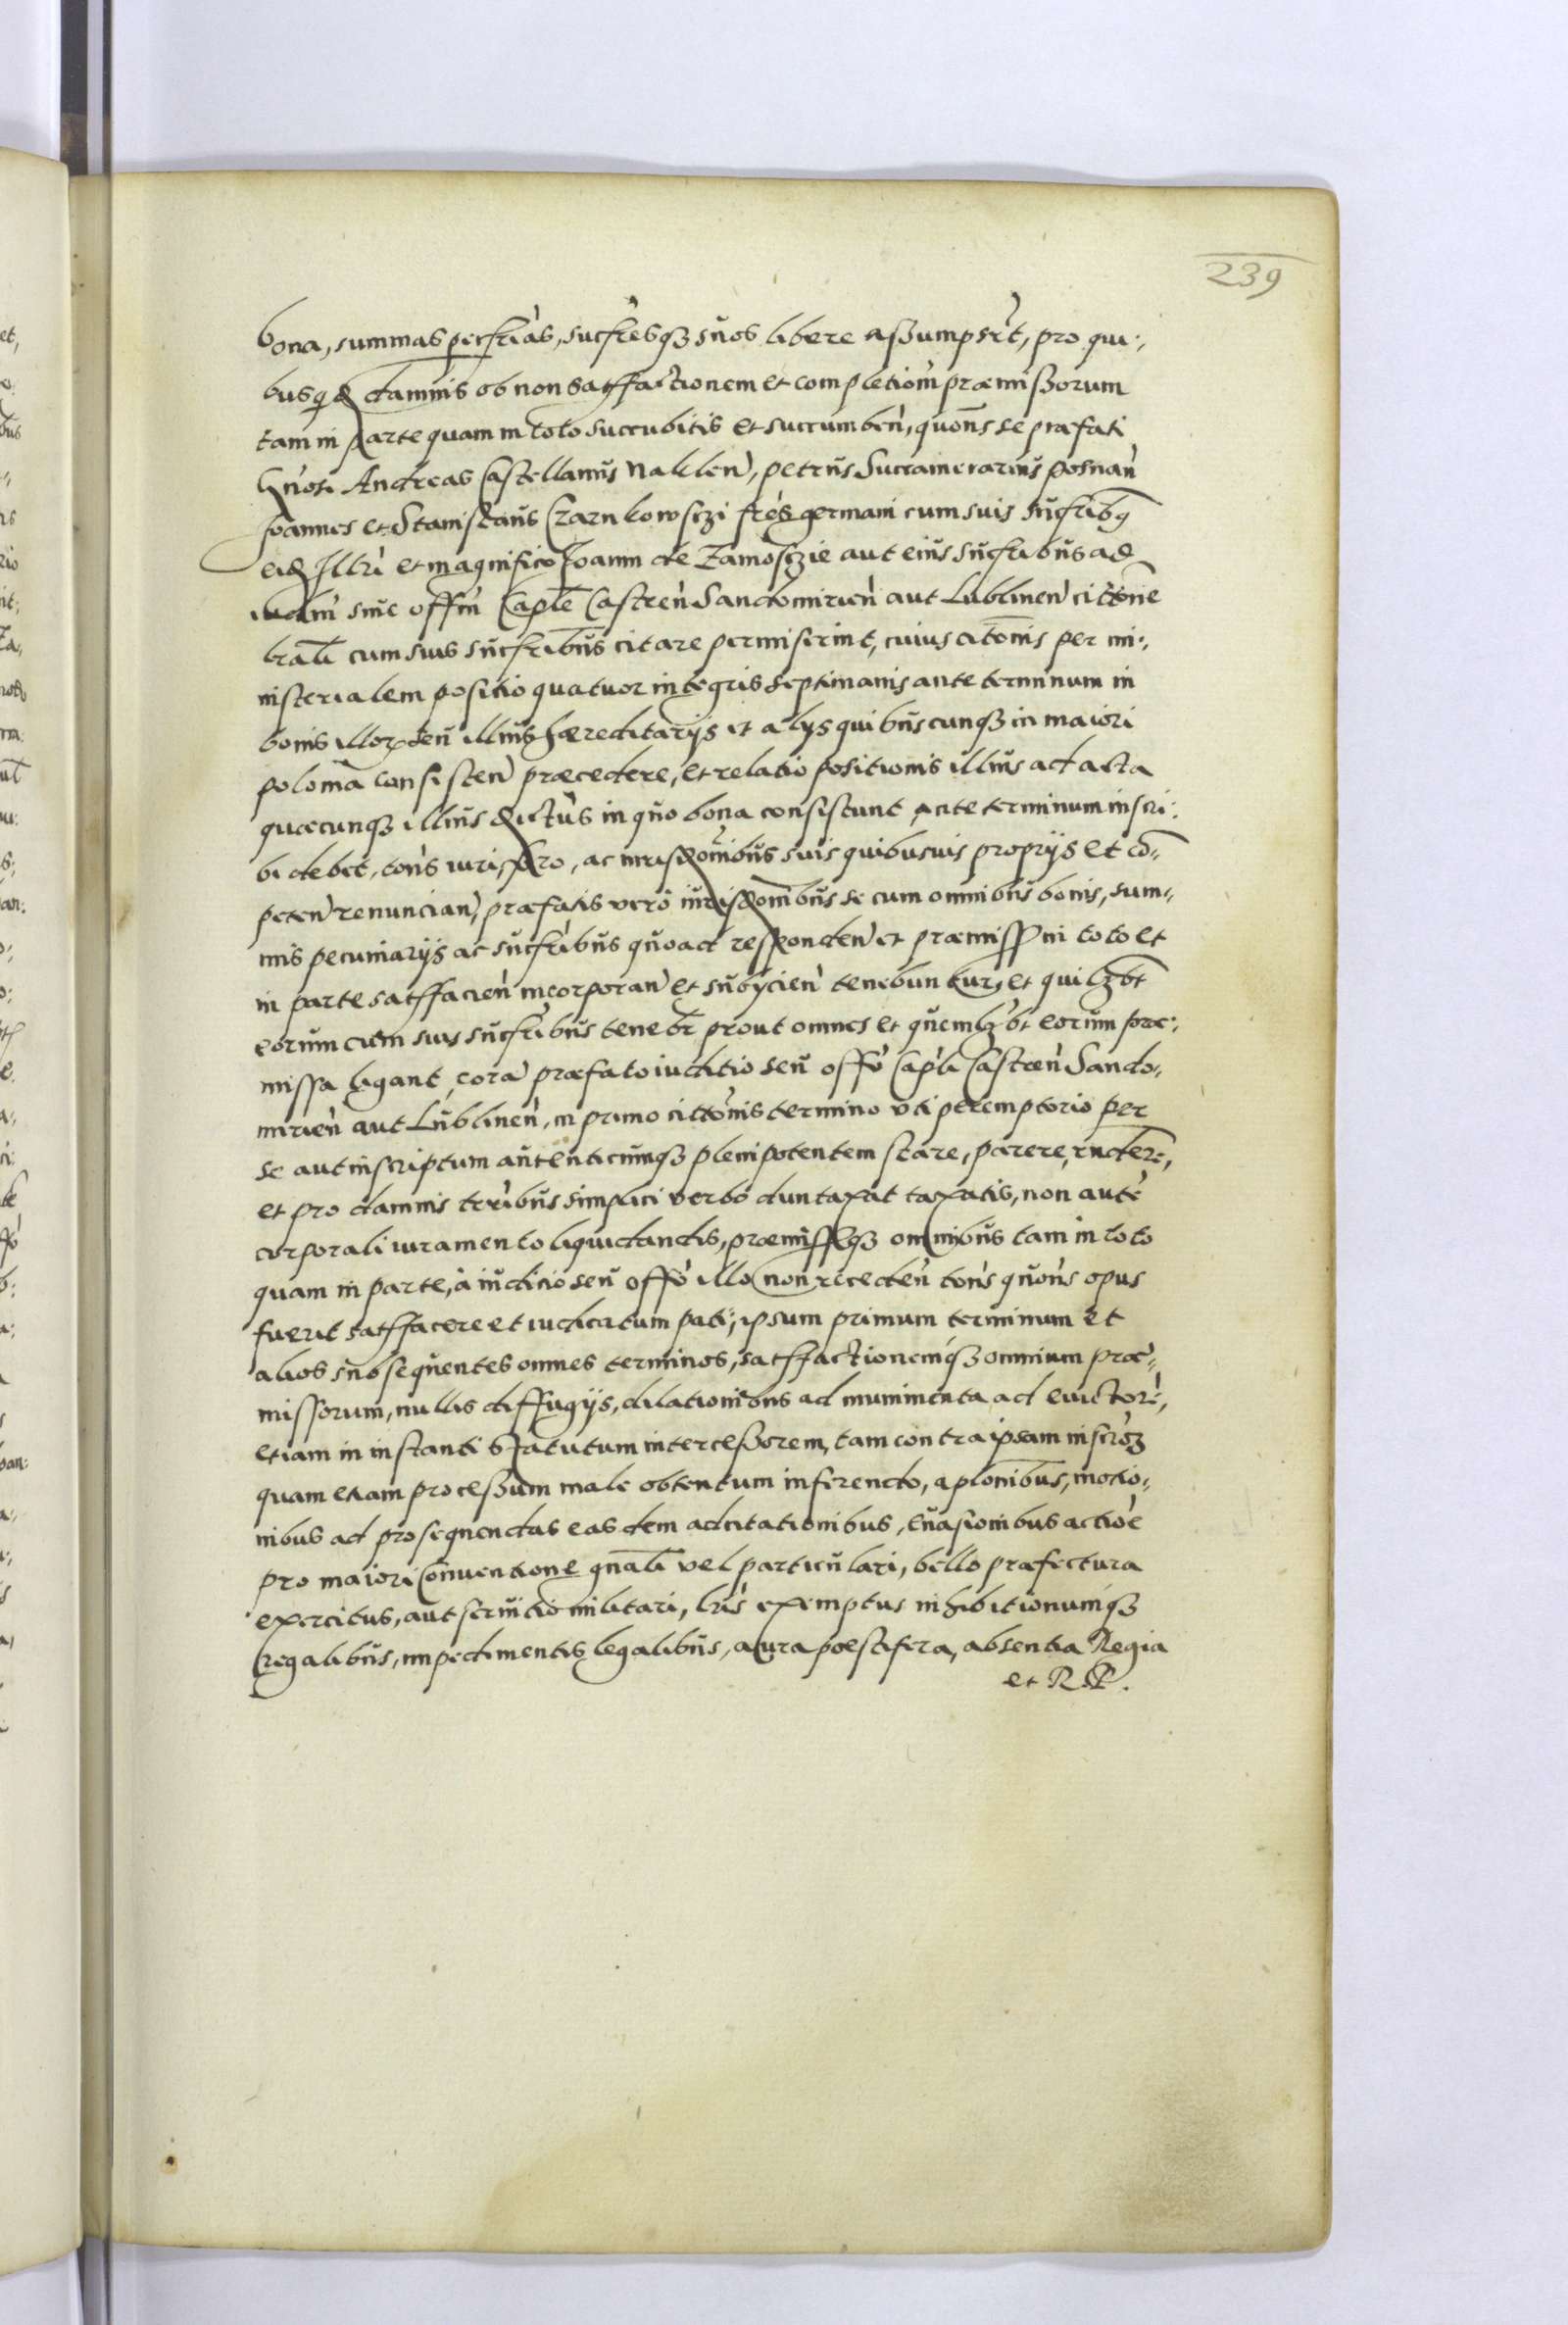 239
bona, summas pecũrias, sucr̃esq3 sũos libere aßumpsẽrt, pro qui:,
busq̃ damnis ob non satffactionem et completiom̃ præmißorum
tam in parte quam in toto succubitis et succumben̄, quom̃s se præfati
Gñosi Andreas Castellanũs Naklen̄, Petrũs Succamerariũs Posnan̄
Joannes et Stanislaũs Czarnkowsczi fr̃es germani cum suis sũcr̃ibq
eid Illri et magnifico Joanni de Zamosczie aut eiũs sũcr̃ibũs ad
iudm̃ siue offm̃ Caplẽ Castren̄ Sandomirien̄ aut Lublinen̄ cittõne
lrali cum suis sũcr̃ibũs citare permiserint, cuius citõnis per mi:
nisterialem positio quatuor integris septimanis ante terminum in
bonis illor̃ seũ illiũs hæreditarijs et alijs quibũscunq3 in maiori
polonia consisten̄ præcedere, et relatio positionis illiũs ad acta
quæcunq3 illiũs dictũs in qũo bona consistunt ante terminum inscri:
bi debet, tom̃s iuri, foro, ac iurisdõnibũs suis quibusuis proprijs et cõ
peten̄ renuncian̄, præfatis verò iũrisdõnibũs se cum omnibũs bonis, sum
mis pecuniarijs ac sũcr̃ibũs qũoad responden̄ et præmiss̃ in toto et
in parte satffacien̄ incorporan̄ et sũbijcien̄ tenebuntur, et quilzbt
eorũm cum suis sũcr̃ibũs tenebr̃ prout omnes et qũemlzbt eorũm præ:
missa ligant, corã præfato iuditio seũ offõ Capli Castren̄ Sando:
mirien̄ aut Lũblinen̄, in primo cittõnis termino vti peremptorio per
se aut inscriptum aũtenticũmq3 plenipotentem stare, parere, rñdere,
et pro damnis trr̃ibũs simplici verbo duntaxat taxatis, non autẽ
corporali iuramento liquidandis, præmissisq3 omnibũs tam in toto
quam in parte, à iũdicio seũ offõ illo non receden̄ tom̃s qũom̃s opus
fuerit satffacere et iudicatum pati, ipsum primum terminum et
alios sũbseqũentes omnes terminos, satffactionemq3 omnium præ
missorum, nullis diffugijs, dilationibũs ad munimenta ad euictorẽ,
etiam in instanti Statutum interceßorem, tam contra ipsam inscrõz
quam etiam proceßum male obtentum inferendo, aplõnibus, motio
nibus ad prosequendas easdem adcitationibus, eũasionibus actiõe
pro maiori Conuentione gñali vel particũlari, bello præfectura
exercitus, aut serũitio militari, lris exemptus inhibitionumq3
regalibũs, impedimentis legalibũs, aura pæstifera, absentia Regia
et R. P.